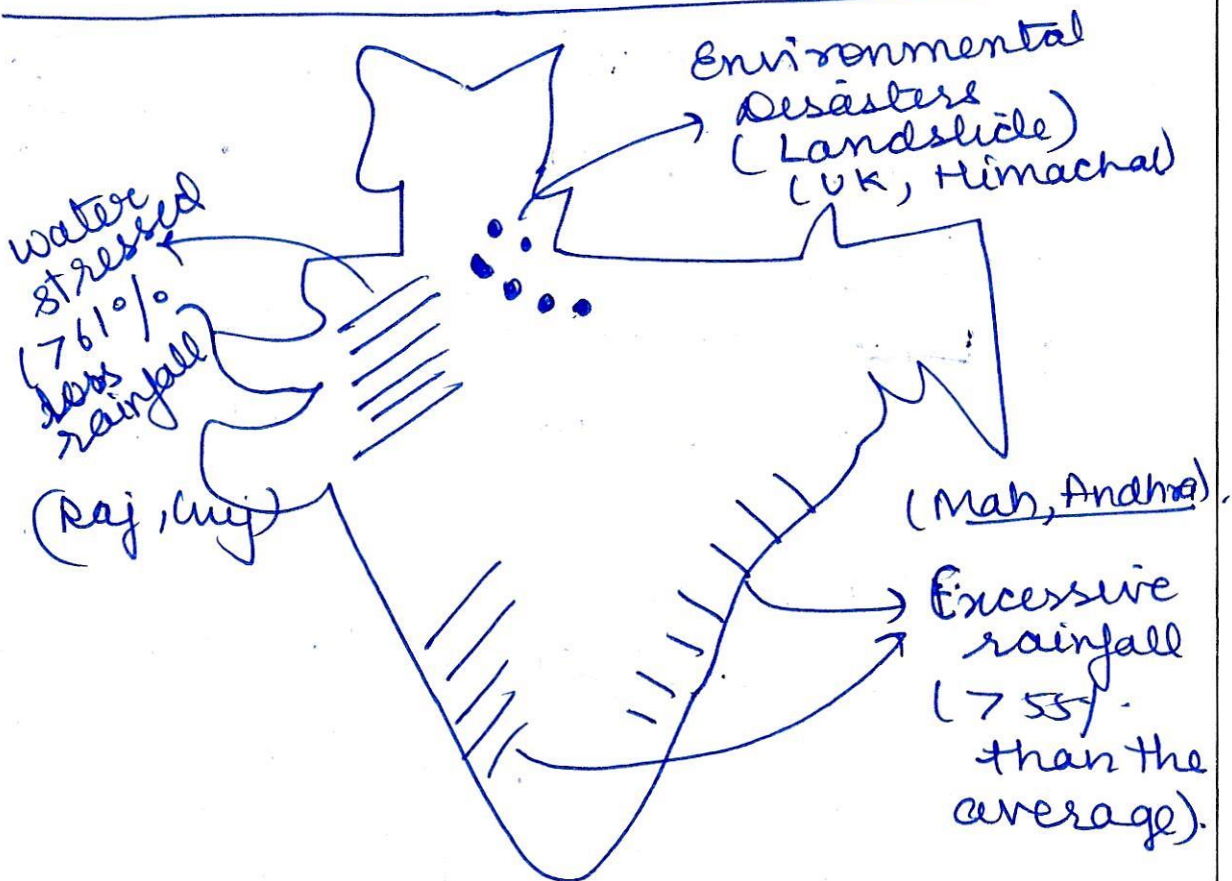 Environmental
Desasters
(Landslide)
(UK, Himachal)
water
stressed
(>61%
loss
rainfall
(Raj, Guj)
(Mah, Andhra).
Excessive
rainfall
(>55%.
than the
average).